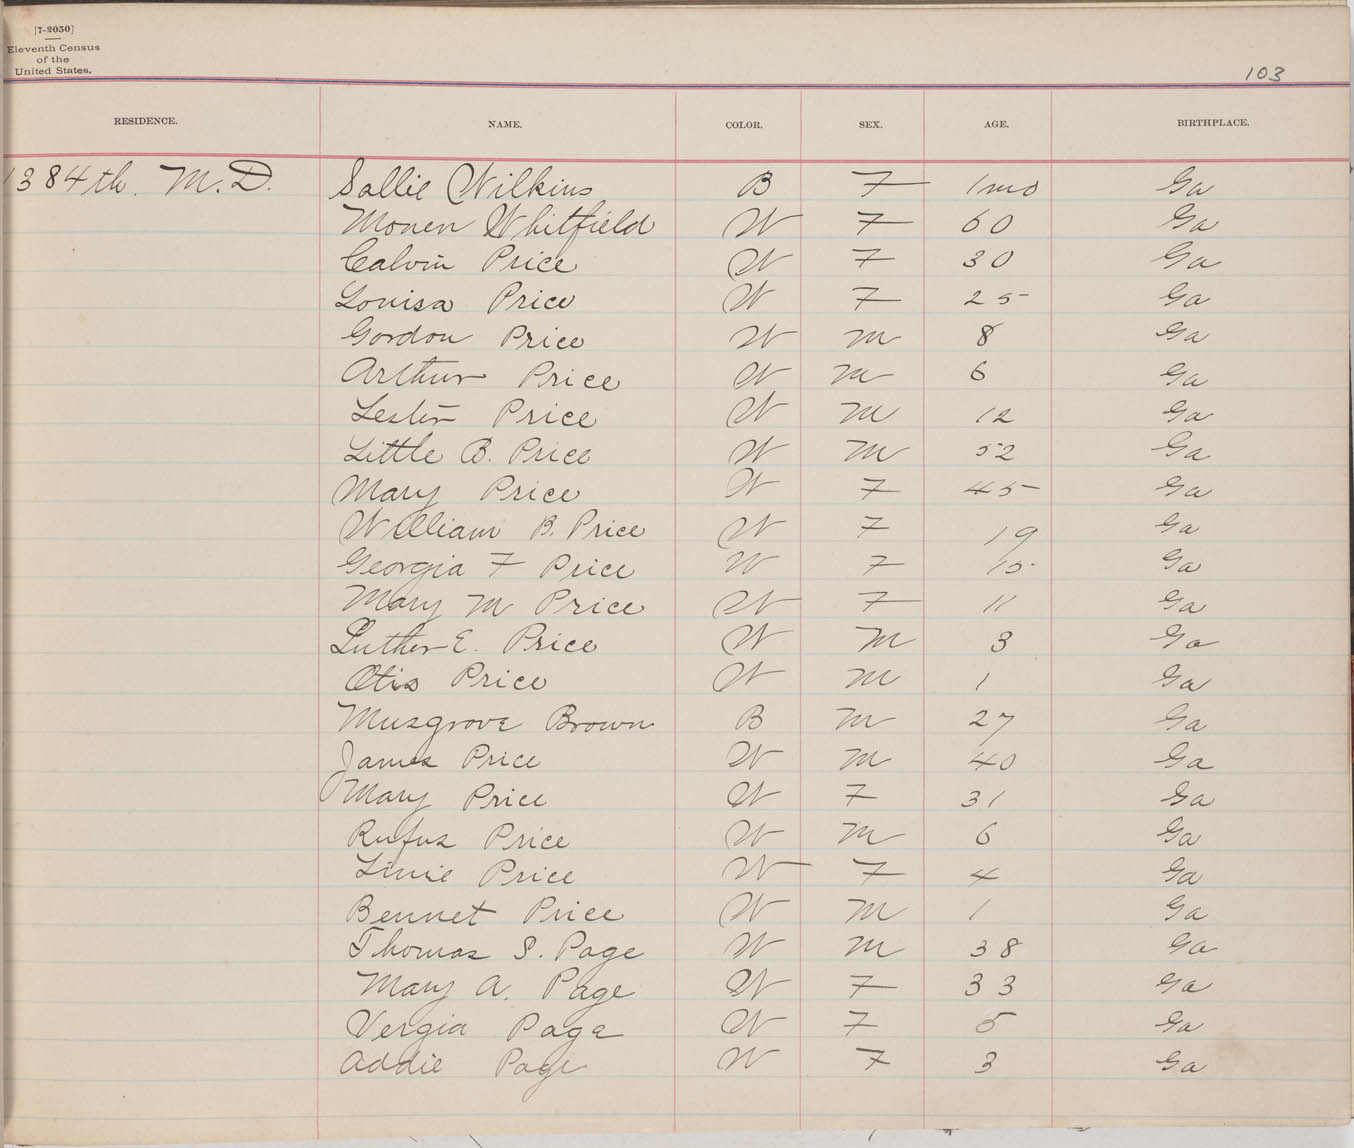 [7-2050]
Eleventh Census
of the
United States.
103
RESIDENCE. NAME. COLOR. SEX. AGE. BIRTHPLACE.
1384th. M.D. Sallie Wilkins B F 1mo Ga
Monen Whitfield W F 60 Ga
Calvin Price W F 30 Ga
Louisa Price W F 25 Ga
Gordon Price W M 8 Ga
Arthur Price W M 6 Ga
Lester Price W M 12 Ga
Little B. Price W M 52 Ga
Mary Price W F 45 Ga
William B. Price W F 19 Ga
Georgia F Price W F 15 Ga
Mary M Price W F 11 Ga
Luther E. Price W M 3 Ga
Otis Price W M 1 Ga
Musgrove Brown B M 27 Ga
James Price W M 40 Ga
Mary Price W F 31 Ga
Rufus Price W M 6 Ga
Linie Price W F 4 Ga
Bennet Price W M 1 Ga
Thomas S. Page W M 38 Ga
Mary A. Page W F 33 Ga
Vergia Page W F 5 Ga
Addie Page W F 3 Ga